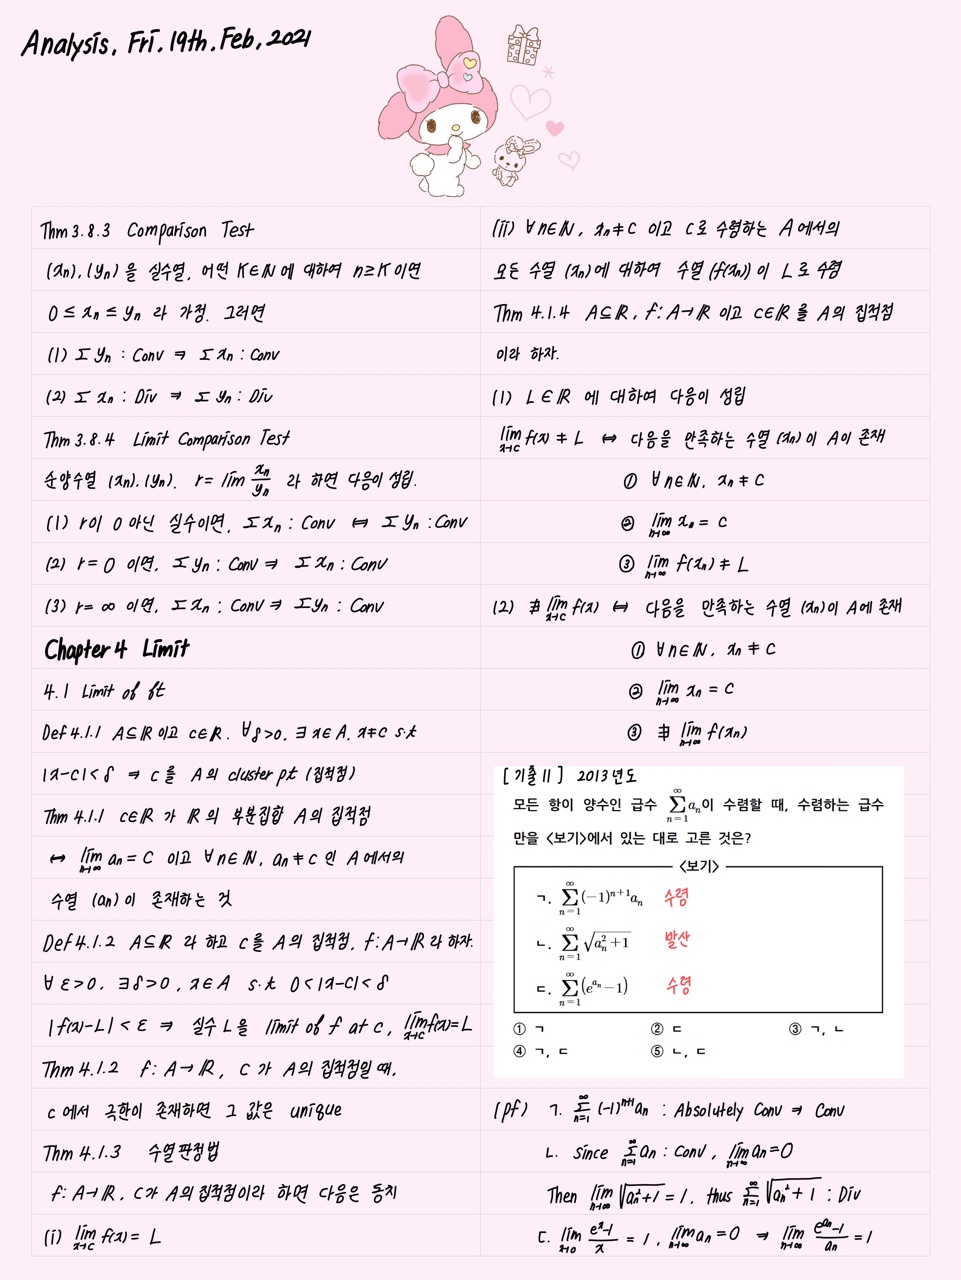 Analysis, Fri. 19th. Feb, 2021
Thm 3.8.3 Comparison Test
(xn), (yn) 을 실수열, 어떤 K∈ℕ에 대하여 n≥K이면
0 ≤ xn ≤ yn 라 가정. 그러면
(1) Σ yn : Conv ⇒ Σ xn : Conv
(2) Σ xn : Div ⇒ Σ yn : Div
Thm 3.8.4 Limit Comparison Test
순양수열 (xn), (yn), r = lim xn/yn 라 하면 다음이 성립.
(1) r이 0 아닌 실수이면, Σ xn : Conv ⇔ Σ yn : Conv
(2) r = 0 이면, Σ yn : Conv ⇒ Σ xn : Conv
(3) r = ∞ 이면, Σ xn : Conv ⇒ Σ yn : Conv
Chapter 4 Limit
4.1 Limit of ft
Def 4.1.1 A⊆ℝ이고 c∈ℝ. ∀δ>0, ∃x∈A, x≠c s.t
|x-c|<δ ⇒ c를 A의 cluster pt (집적점)
Thm 4.1.1 c∈ℝ가 ℝ의 부분집합 A의 집적점
⇔ lim n→∞ an = C 이고 ∀n∈ℕ, an≠c 인 A에서의
수열 (an)이 존재하는 것
Def 4.1.2 A⊆ℝ라 하고 c를 A의 집적점, f: A→ℝ라 하자.
∀ε>0, ∃δ>0, x∈A s.t 0<|x-c|<δ
|f(x)-L|<ε ⇒ 실수 L을 limit of f at c, lim x→c f(x)=L
Thm 4.1.2 f: A→ℝ, C가 A의 집적점일 때,
c에서 극한이 존재하면 그 값은 unique
Thm 4.1.3 수열판정법
f: A→ℝ, C가 A의 집적점이라 하면 다음은 동치
(i) lim x→c f(x) = L
(ii) ∀n∈ℕ, xn≠c 이고 c로 수렴하는 A에서의
모든 수열 (xn)에 대하여 수열 (f(xn))이 L로 수렴
Thm 4.1.4 A⊆ℝ, f: A→ℝ이고 c∈ℝ를 A의 집적점
이라 하자.
(1) L∈ℝ에 대하여 다음이 성립
lim x→c f(x) ≠ L ⇔ 다음을 만족하는 수열 (xn)이 A이 존재
① ∀n∈ℕ, xn ≠ C
② lim n→∞ xn = C
③ lim n→∞ f(xn) ≠ L
(2) ∄ lim x→c f(x) ⇔ 다음을 만족하는 수열 (xn)이 A에 존재
① ∀n∈ℕ, xn ≠ C
② lim n→∞ xn = C
③ ∄ lim n→∞ f(xn)
[기출 11] 2013년도
모든 항이 양수인 급수 ∑_{n=1}^{∞} a_n이 수렴할 때, 수렴하는 급수
만을 <보기>에서 있는 대로 고른 것은?
<보기>
ㄱ. ∑_{n=1}^{∞} (-1)^{n+1} a_n 수렴
ㄴ. ∑_{n=1}^{∞} √(a_n^2+1) 발산
ㄷ. ∑_{n=1}^{∞} (e^{a_n}-1) 수렴
① ㄱ ② ㄷ ③ ㄱ, ㄴ
④ ㄱ, ㄷ ⑤ ㄴ, ㄷ
(pf) ㄱ. ∑_{n=1}^{∞} (-1)^{n+1} an : Absolutely Conv ⇒ Conv
ㄴ. since ∑_{n=1}^{∞} an : Conv, lim n→∞ an = 0
Then lim n→∞ √(an²+1) = 1, thus ∑_{n=1}^{∞} √(an²+1) : Div
ㄷ. lim x→0 (e^x-1)/x = 1, lim n→∞ an = 0 ⇒ lim n→∞ (e^{an}-1)/an = 1